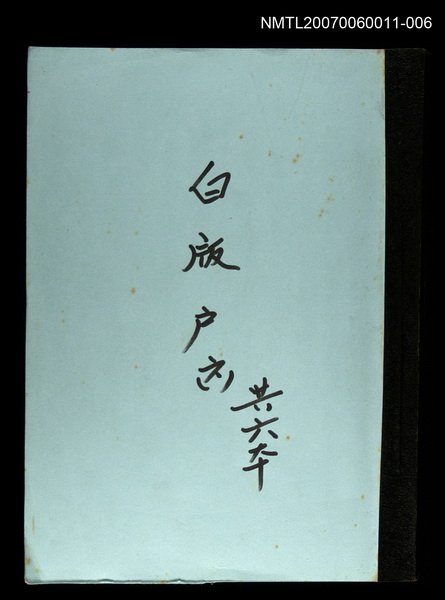 NMTL20070060011-006
白版户
共六本